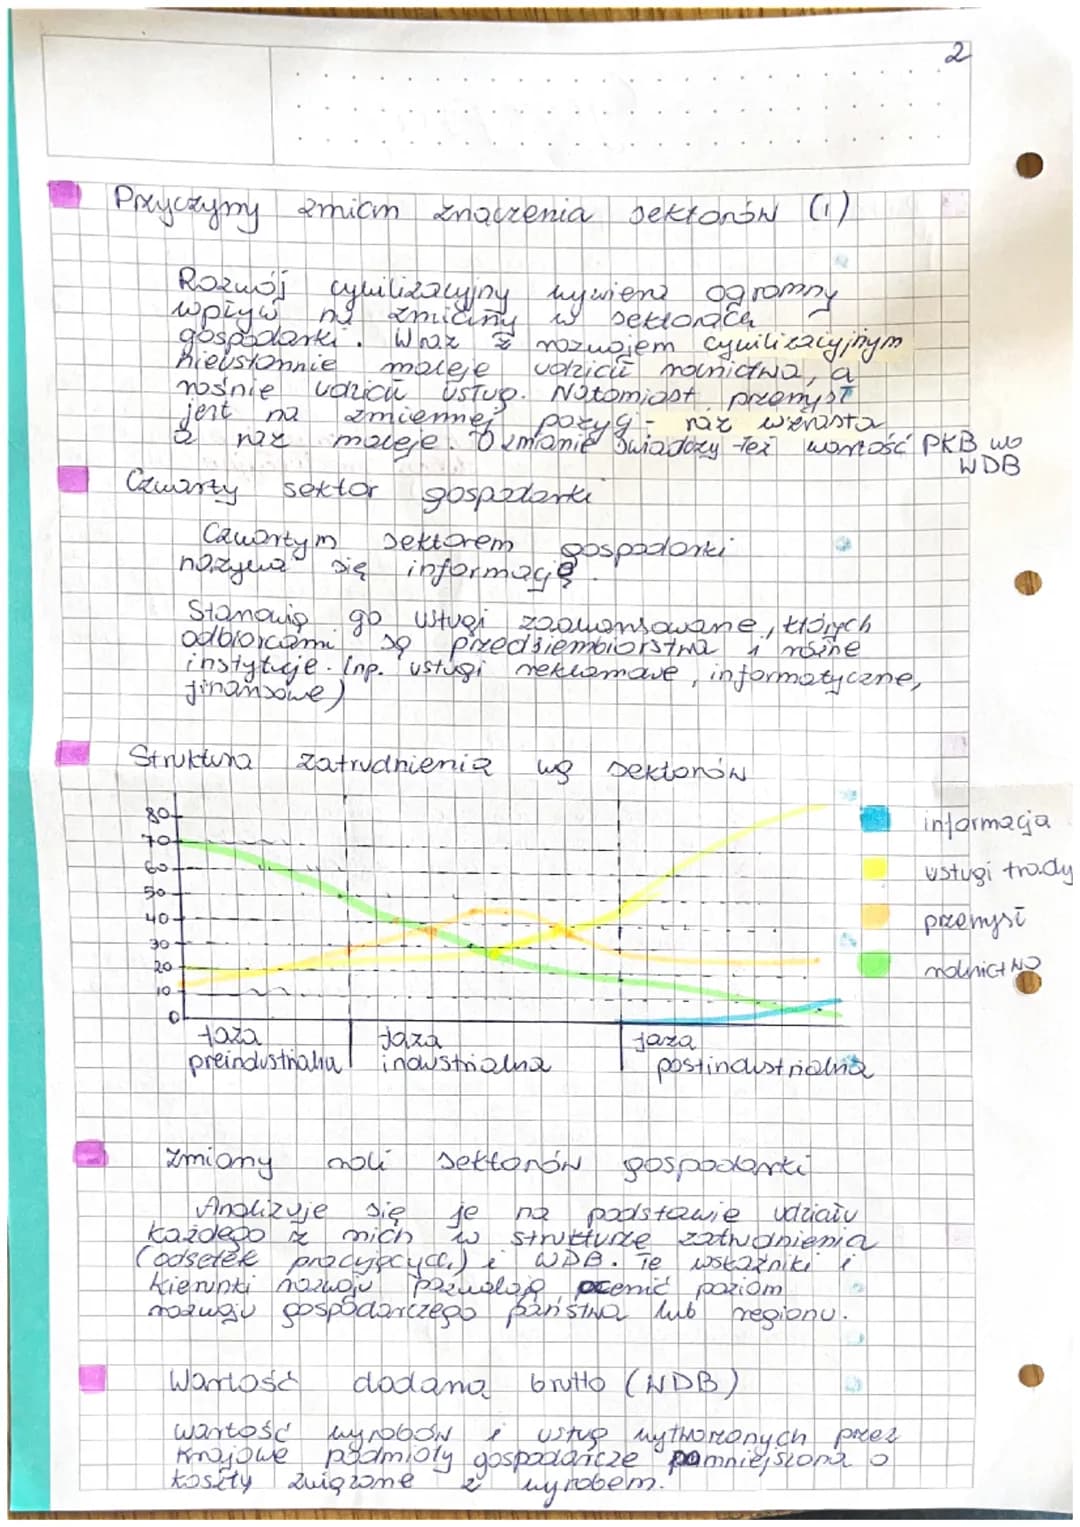 2
Przyczyny zmian znaczenia sektorów (1)
Rozwój cywilizacyjny wywiera ogromny
wpływ na zmiany w sektorach
gospodarki. Wraz z rozwojem cywilizacyjnym
nieustannie maleje udział rolnictwa, a
rośnie udział usług. Natomiast przemysł
jest na zmiennej pozycji - raz wzrasta
a raz maleje. O zmianie świadczy też wartość PKB wo
WDB
Czwarty sektor gospodarki
Czwartym sektorem gospodarki
nazywa się informację.
Stanowią go usługi zaawansowane, których
odbiorcami są przedsiębiorstwa i różne
instytucje. (np. usługi reklamowe, informatyczne,
finansowe)
Struktura zatrudnienia wg sektorów
80
70
60
50
40
30
20
10
0
informacja
usługi trady
przemysł
rolnictwo
faza preindustrialna
faza industrialna
faza postindustrialna
Zmiany roli sektorów gospodarki
Analizuje się je na podstawie udziału
każdego z nich w strukturze zatrudnienia
(odsetek pracujących) i WDB. Te wskaźniki i
kierunki rozwoju pozwalają ocenić poziom
rozwoju gospodarczego państwa lub regionu.
Wartość dodana brutto (WDB)
wartość wyrobów i usług wytworzonych przez
krajowe podmioty gospodarcze pomniejszona o
koszty związane z wyrobem.